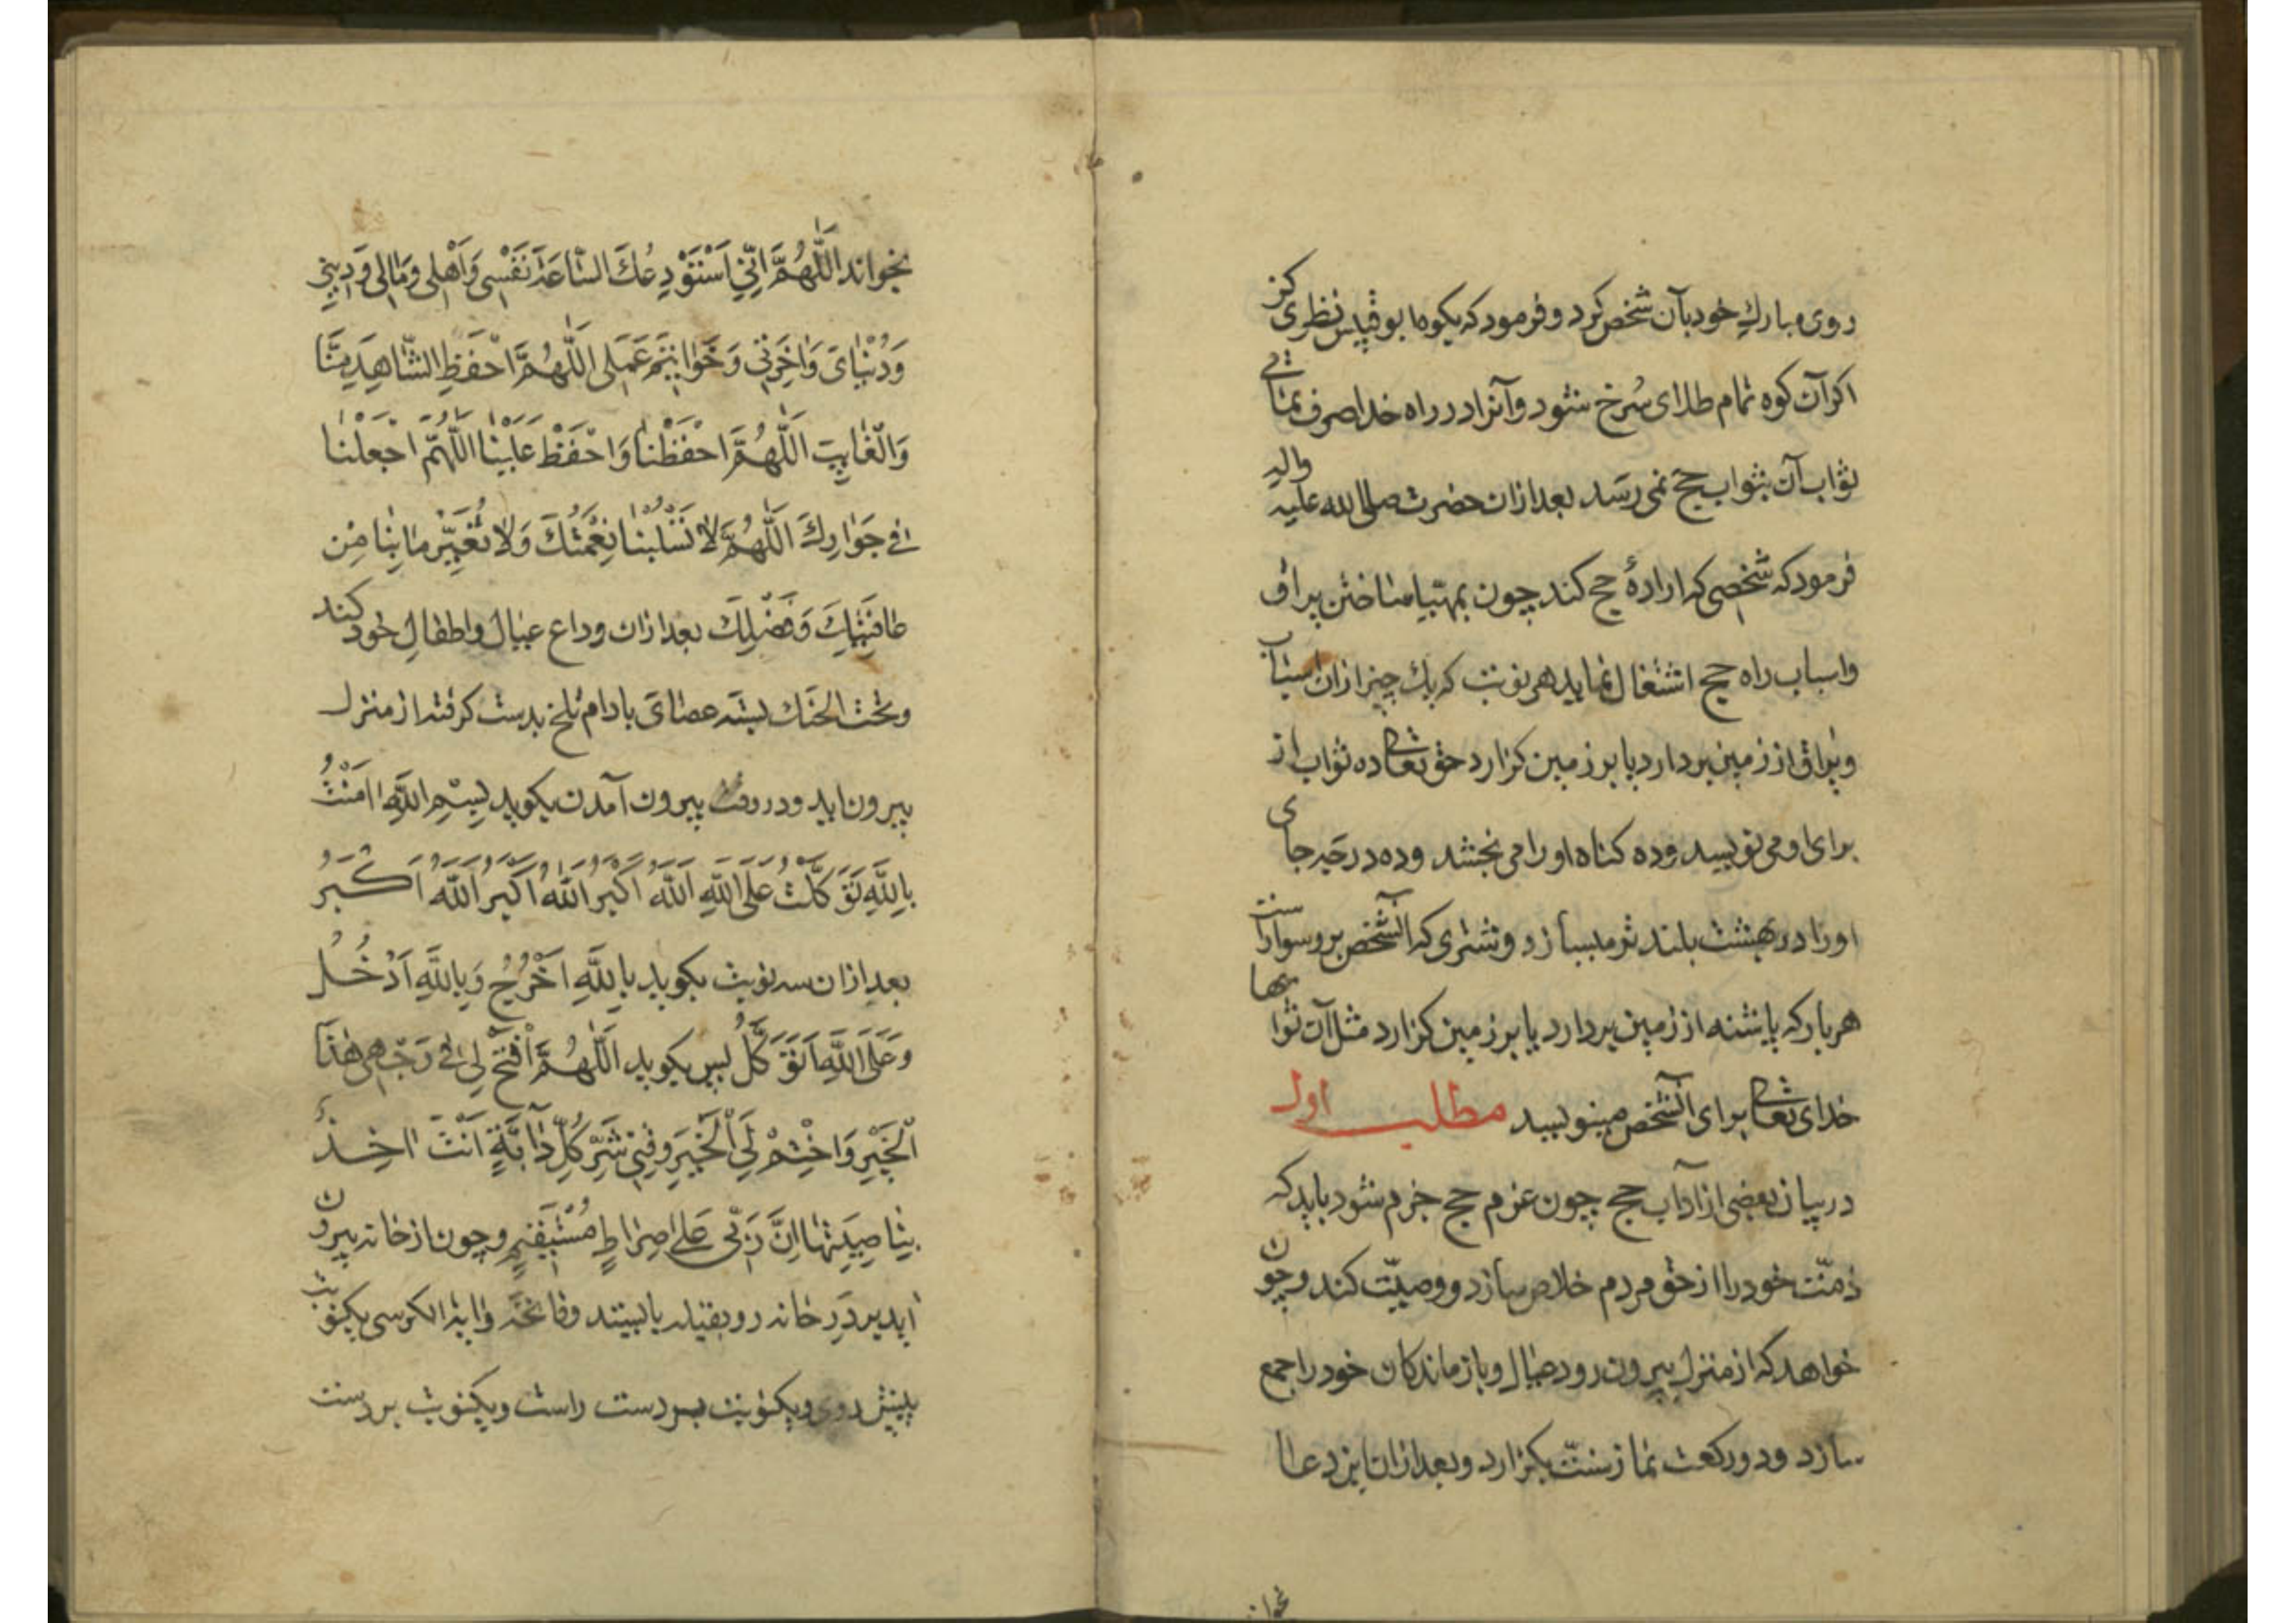 روی مبارك خود بآن شخص كرد و فرمود كه بكوه ابو قبیس نظری كن
اكر آن كوه تمام طلای سُرخ شود و آنرا در راه خدا صرف نمائی
ثواب آن بثواب حج نمی رسد بعد ازان حضرت صلی الله علیه واله
فرمود كه شخصی كه ارادهٔ حج كند چون بمهیّا ساختن یراق
و اسباب راه حج اشتغال نماید هر نوبت كه یك چیز ازان اسباب
و یراق از زمین بردارد یا بر زمین كزارد حق تعالی ده ثواب از
برای او می نویسد و ده كناه او را می بخشد و ده درجه جای
او را در بهشت بلند تر میسازد و شتری كه آنشخص برو سوارست
هر بار كه پاشنه از زمین بردارد یا بر زمین كزارد مثل آن ثوابها
خدای تعالی برای آنشخص مینویسد مطلب اول
در بیان بعضی از آداب حج چون عزم حج جزم شود باید كه
ذمّت خود را از حق مردم خلاص سازد و وصیّت كند و چون
خواهد كه از منزل بیرون رود عیال و بازماندكان خود را جمع
سازد و دو ركعت نماز سنّت بكزارد و بعد ازان این دعا
بخواند
بخواند اَللّٰهُمَّ اِنّی اَسْتَوْدِعُكَ السّاعَةَ نَفْسِی وَاَهْلِی وَمَالِی وَدِینِی
وَدُنْیَایَ وَاٰخِرَتِی وَخَوَاتِیمَ عَمَلِی اَللّٰهُمَّ احْفَظِ الشّاهِدَ مِنَّا
وَالْغَایِبَ اَللّٰهُمَّ احْفَظْنَا وَاحْفَظْ عَلَیْنَا اَللّٰهُمَّ اجْعَلْنَا
فِی جَوَارِكَ اَللّٰهُمَّ لَا تَسْلُبْنَا نِعْمَتَكَ وَلَا تُغَیِّرْ مَا بِنَا مِن
عَافِیَتِكَ وَفَضْلِكَ بعد ازان وداع عیال و اطفالِ خود كند
و تحت الحنك بسته عصای بادام تلخ بدست كرفته از منزل
بیرون اید و در وقت بیرون آمدن بكوید بِسْمِ اللّٰهِ اٰمَنْتُ
بِاللّٰهِ تَوَكَّلْتُ عَلَی اللّٰهِ اَللّٰهُ اَكْبَرُ اَللّٰهُ اَكْبَرُ اَللّٰهُ اَكْبَرُ
بعد ازان سه نوبت بكوید بِاللّٰهِ اَخْرُجُ وَبِاللّٰهِ اَدْخُلُ
وَعَلَی اللّٰهِ اَتَوَكَّلُ پس بكوید اَللّٰهُمَّ افْتَحْ لِی فِی وَجْهِی هٰذَا
الْخَیْرِ وَاخْتِمْ لِی الْخَیْرَ وَقِنِی شَرَّ كُلِّ دَابَّةٍ اَنْتَ اٰخِذٌ
بِنَاصِیَتِهَا اِنَّ رَبّی عَلٰی صِرَاطٍ مُسْتَقِیمٍ و چون از خانه بیرون
اید بر دَرِ خانه رو بقبله بایستد و فاتحه و ایة الكرسی یكنوبت
پیش روی و یكنوبت بر دست راست و یكنوبت بر دست